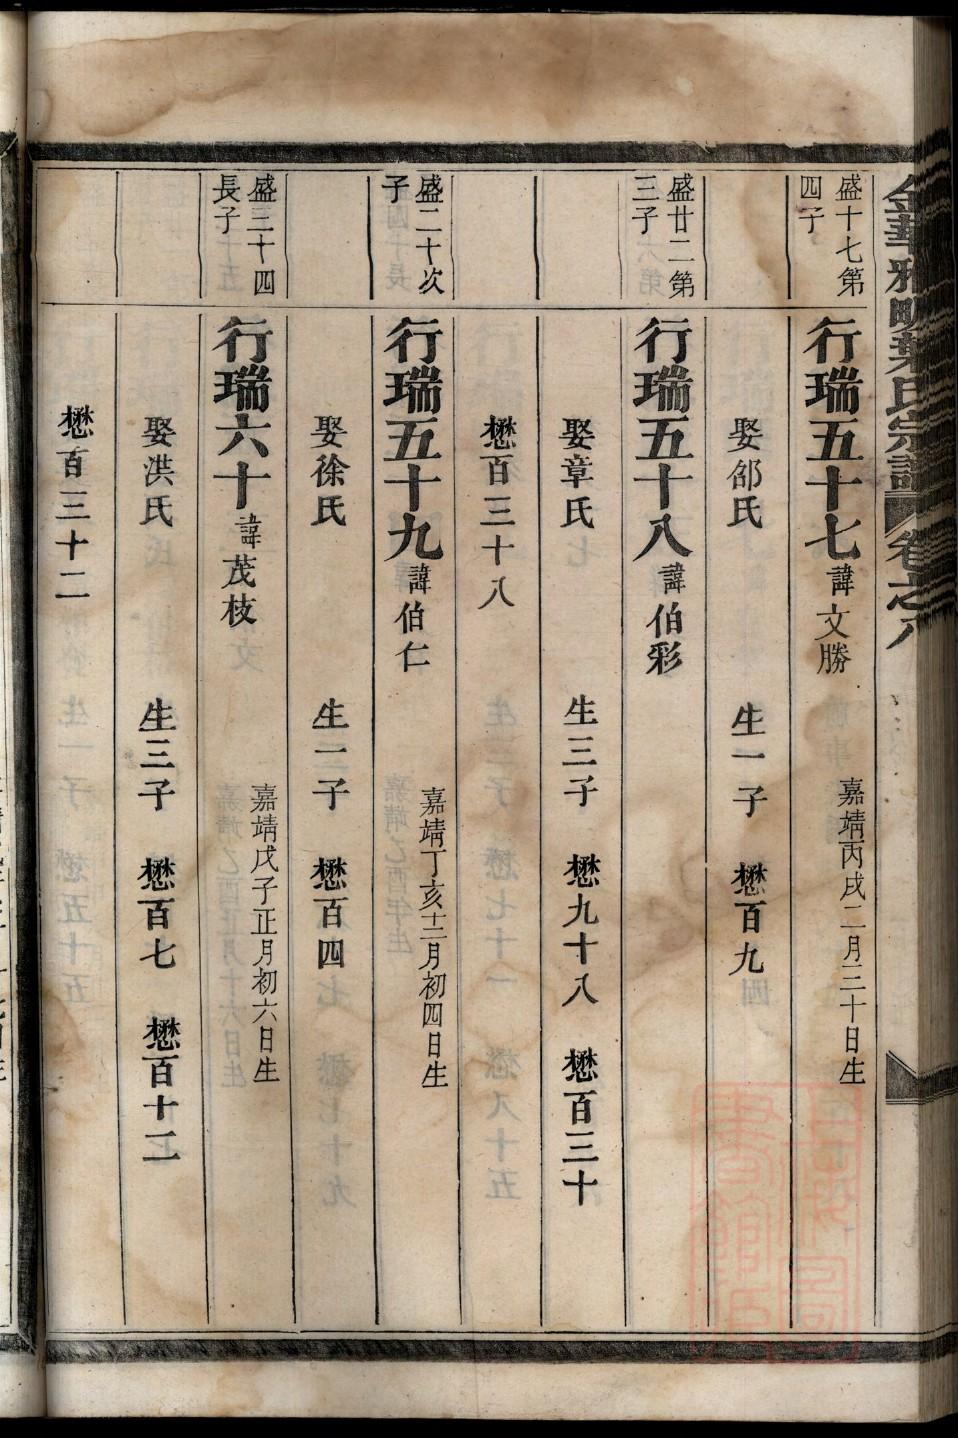 金華雅畈葉氏宗譜 卷之八
盛十七第四子
行瑞五十七 諱文勝 嘉靖丙戌二月三十日生
娶邰氏 生一子 懋百九
盛廿二第三子
行瑞五十八 諱伯彩
娶章氏 生三子 懋九十八 懋百三十
懋百三十八
盛二十次子
行瑞五十九 諱伯仁 嘉靖丁亥十二月初四日生
娶徐氏 生一子 懋百四
盛三十四長子
行瑞六十 諱茂枝 嘉靖戊子正月初六日生
娶洪氏 生三子 懋百七 懋百十二
懋百三十二